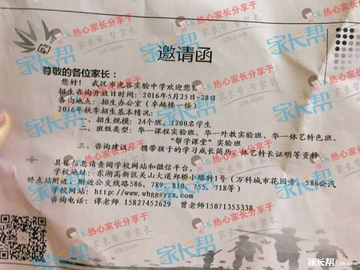 邀请函
尊敬的各位家长：
您好！ 武汉市光谷实验中学欢迎您！
招生咨询开放日时间：2016年5月25日-28日
咨询地点：招生办公室（卓越楼一楼）
2016年秋季招生基本情况：
一、招生规模：24个班，1200名学生
二、班级类型：华一课程实验班、华一外教实验班、华一体艺特色班、
“帮学课堂”实验班
三、咨询建议： 携带孩子的学习成长简历、体艺特长证明等资料
具体信息请查阅学校网站和微信平台。
学校地址：东湖高新区关山大道郑桥小路特1号（万科城市花园旁），586公汽
终点站附近，附近公交线路586、789、810、755、718等）
学校网址：http://www.whggsyzx.com
咨询电话：谭老师 15827452629 曾老师15071353338
家长帮
热心家长分享于
家长帮
jzb.com